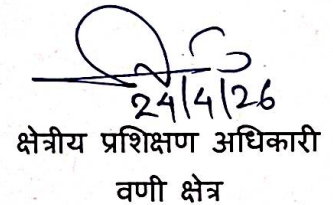 24/4/26
क्षेत्रीय प्रशिक्षण अधिकारी
वणी क्षेत्र